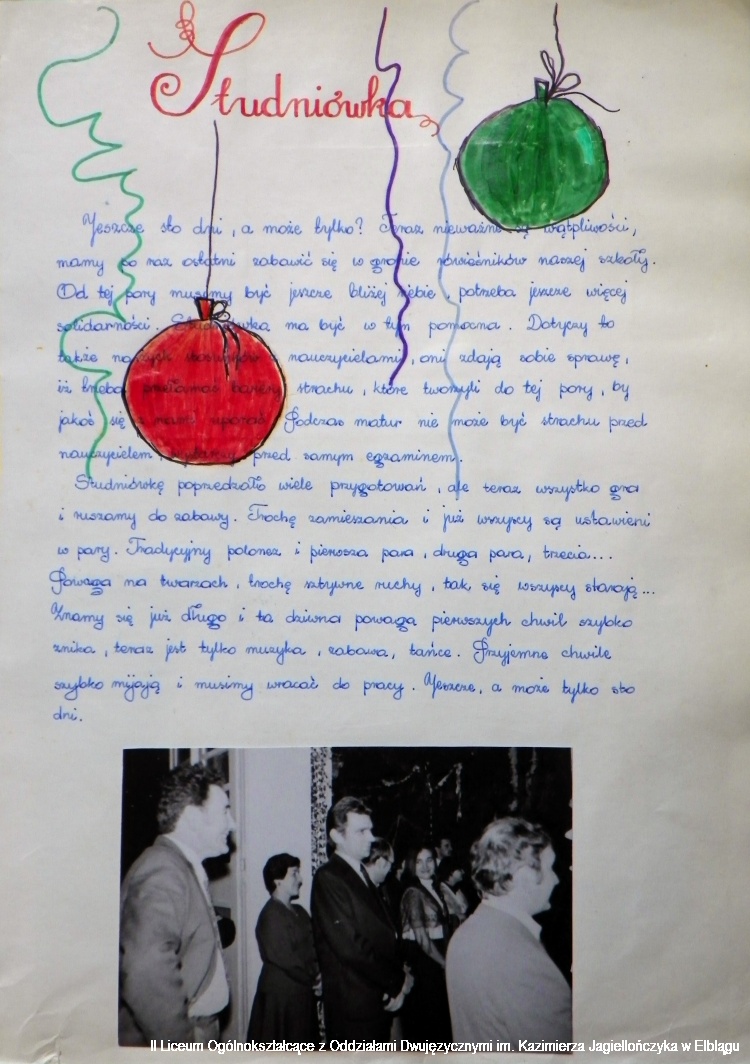 Studniówka
Jeszcze sto dni, a może tylko? Teraz nieważne są wątpliwości,
mamy po raz ostatni zabawić się w gronie rówieśników naszej szkoły.
Od tej pory musimy być jeszcze bliżej siebie, potrzeba jeszcze więcej
solidarności. Studniówka ma być w tym pomocna. Dotyczy to
także naszych stosunków z nauczycielami, oni zdają sobie sprawę,
iż trzeba przełamać bariery strachu, które tworzyli do tej pory, by
jakoś się z nami uporać. Podczas matur nie może być strachu przed
nauczycielem, wystarczy przed samym egzaminem.
Studniówkę poprzedzało wiele przygotowań, ale teraz wszystko gra
i ruszamy do zabawy. Trochę zamieszania i już wszyscy są ustawieni
w pary. Tradycyjny polonez i pierwsza para, druga para, trzecia...
Powaga na twarzach, trochę sztywne ruchy, tak się wszyscy starają...
Znamy się już długo i ta dziwna powaga pierwszych chwil szybko
znika, teraz jest tylko muzyka, zabawa, tańce. Przyjemne chwile
szybko mijają i musimy wracać do pracy. Jeszcze, a może tylko sto
dni.
II Liceum Ogólnokształcące z Oddziałami Dwujęzycznymi im. Kazimierza Jagiellończyka w Elblągu